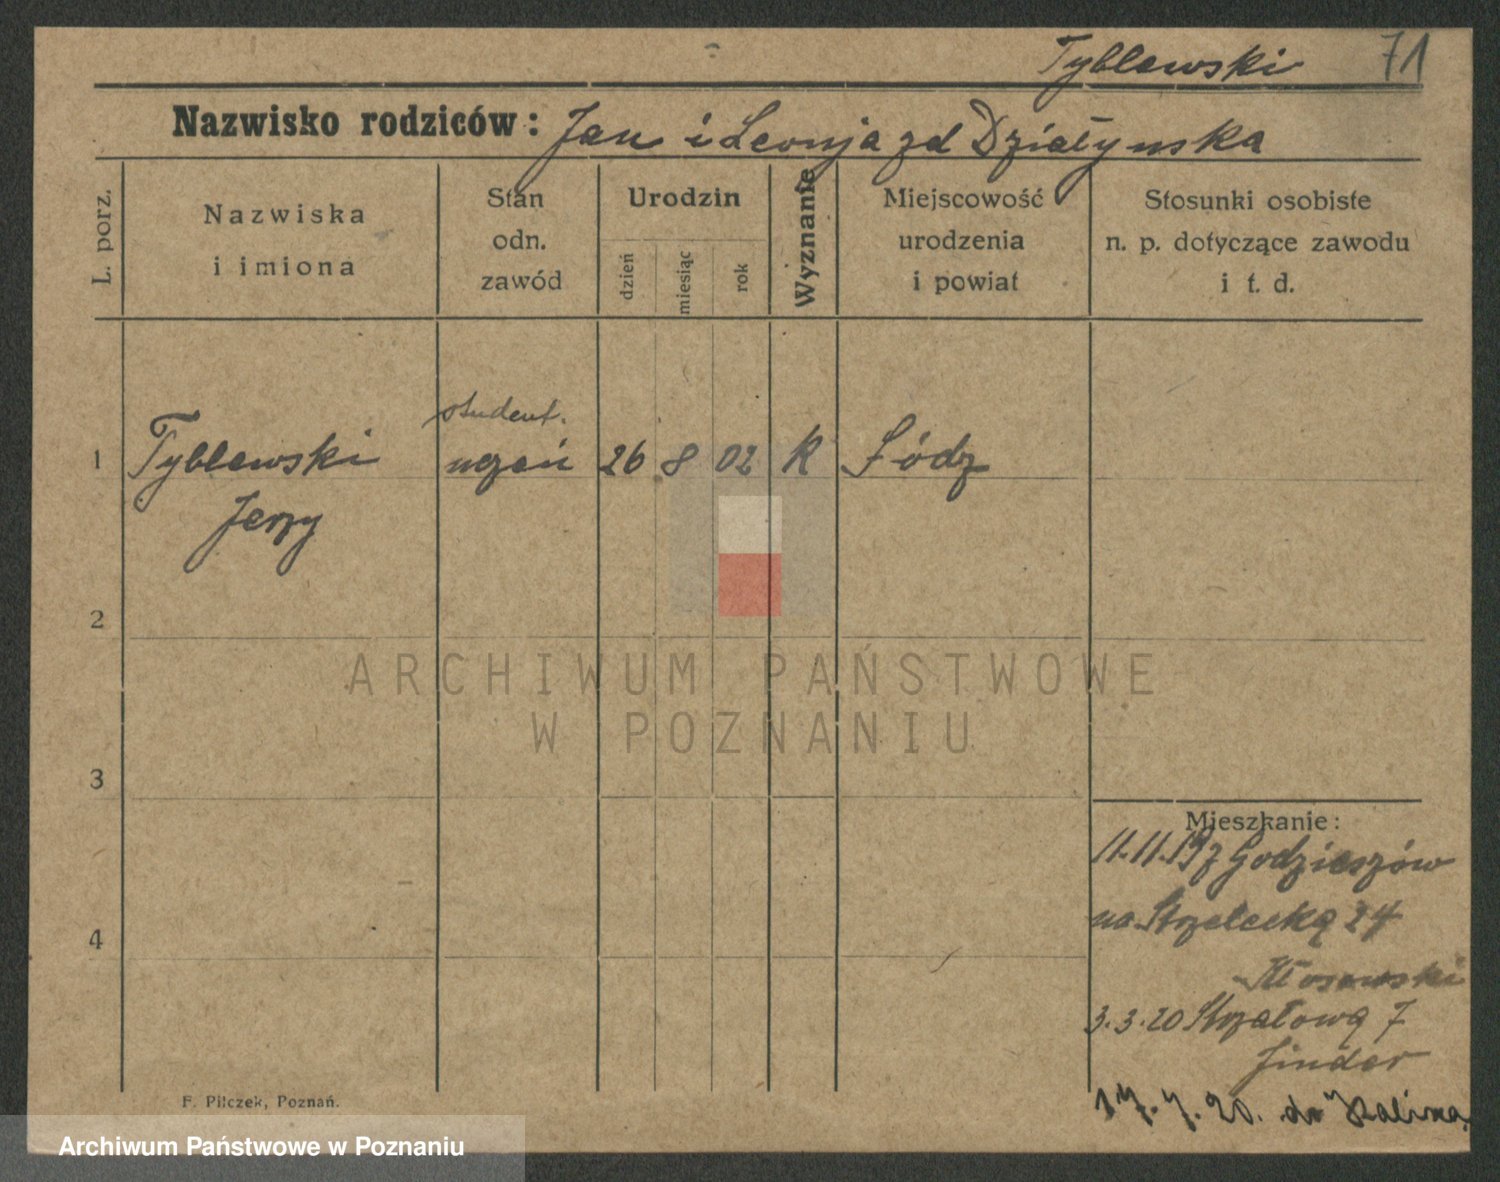 Tyblewski 71
Nazwisko rodziców: Jan i Leonja zd Działynska
L. porz.
Nazwiska
i imiona
Stan
odn.
zawód
Urodzin
dzień
miesiąc
rok
Wyznanie
Miejscowość
urodzenia
i powiat
Stosunki osobiste
n. p. dotyczące zawodu
i t. d.
student.
1 Tyblewski uczeń 26 8 02 K Łódz
Jerzy
2
ARCHIWUM PAŃSTWOWE
W POZNANIU
3
Mieszkanie:
11.11.19 z Godzieszów
na Strzelecką 24
4
Kłosowski
3.3.20 Strzałową 7
Linder
17.7.20. do Kalisza
F. Pilczek, Poznań.
Archiwum Państwowe w Poznaniu